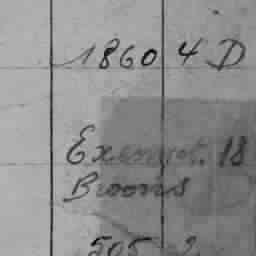 1860 4 D
Exempt. 18
Brooms
505 2